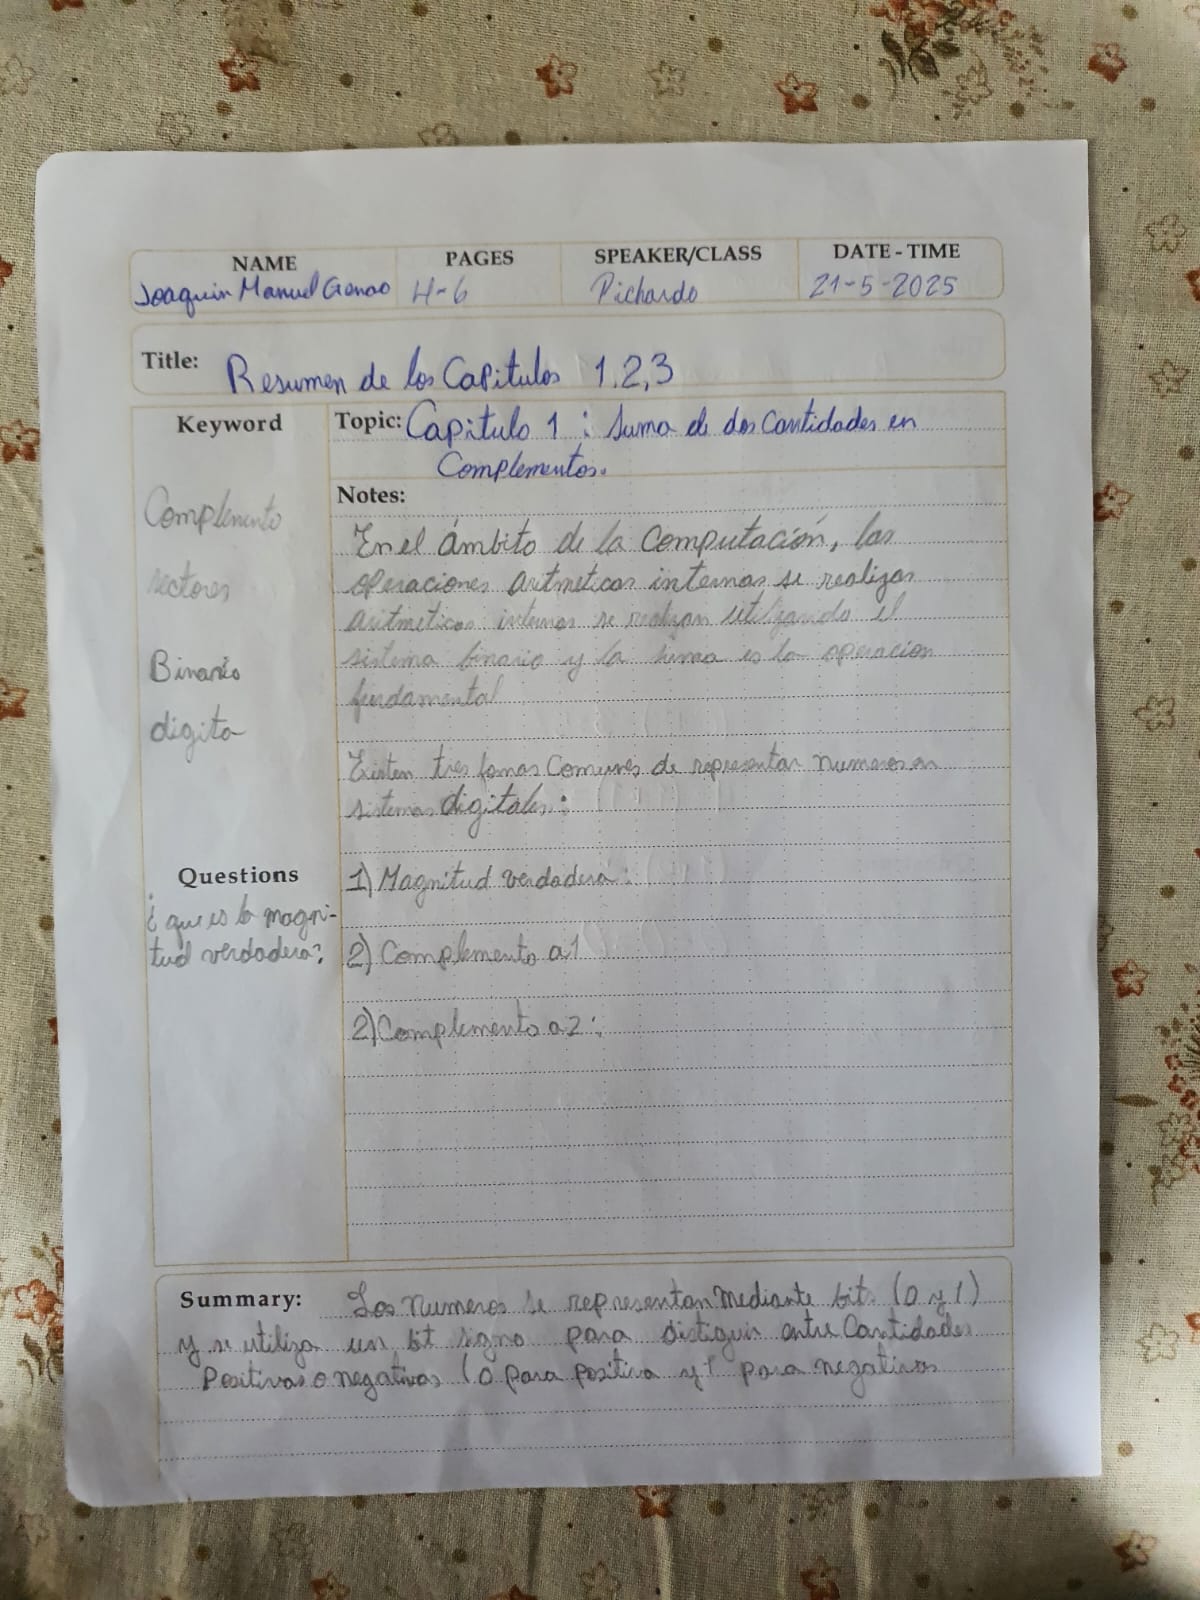 NAME PAGES SPEAKER/CLASS DATE - TIME
Joaquin Manuel Genao 4-6 Pichardo 21-5-2025
Title: Resumen de los Capitulos 1,2,3
Keyword
Complemento
sectores
Binario
digito
Questions
¿ que es la magni-
tud verdadera?
Topic: Capitulo 1 : Suma de dos Cantidades en
Complementos.
Notes:
En el ámbito de la Computación, las
operaciones aritmeticas internas se realizas
aritmeticas internas se realizan utilizando el
sistema binario y la suma es la operacion
fundamental
Existen tres fomas Comunes de representar numeros en
sistemas digitales:
1) Magnitud verdadera:
2) Complemento a 1
2) Complemento a 2:
Summary: Los Numeros se representan Mediante bit (0 y 1)
y se utiliza un bit signo para distiguir entre Cantidades
Positivas o negativas (0 para positiva y 1 para negativas